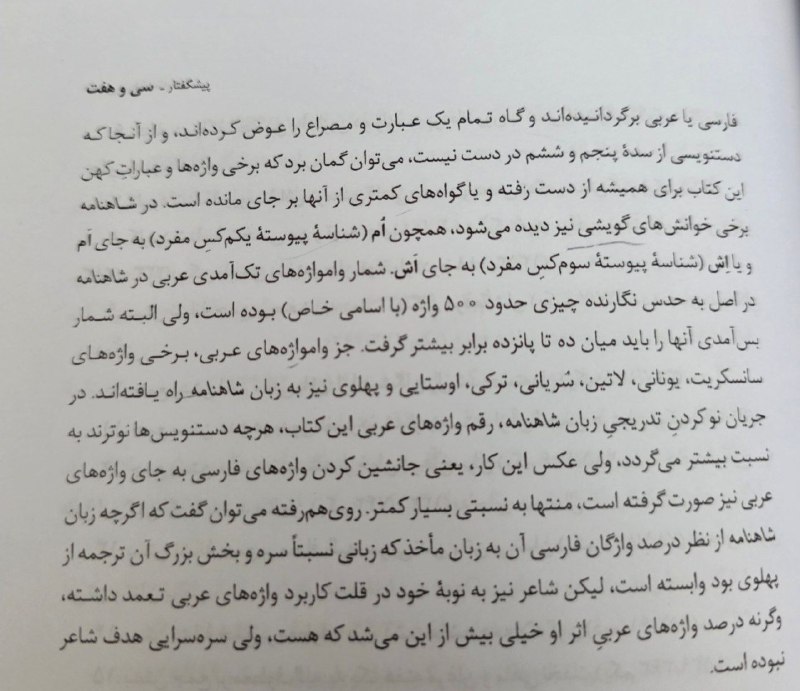 پیشگفتار - سی و هفت
فارسی یا عربی برگردانیده‌اند و گاه تمام یک عبارت و مصراع را عوض کرده‌اند، و از آنجا که
دستنویسی از سدهٔ پنجم و ششم در دست نیست، می‌توان گمان برد که برخی واژه‌ها و عباراتِ کهن
این کتاب برای همیشه از دست رفته و یا گواه‌های کمتری از آنها بر جای مانده است. در شاهنامه
برخی خوانش‌های گویشی نیز دیده می‌شود، همچون اُم (شناسهٔ پیوستهٔ یکم‌کسِ مفرد) به جای اَم
و یا اِش (شناسهٔ پیوستهٔ سوم‌کسِ مفرد) به جای اَش. شمار وامواژه‌های تک‌آمدی عربی در شاهنامه
در اصل به حدس نگارنده چیزی حدود ۵۰۰ واژه (با اسامی خاص) بوده است، ولی البته شمار
بس‌آمدی آنها را باید میان ده تا پانزده برابر بیشتر گرفت. جز وامواژه‌های عربی، برخی واژه‌های
سانسکریت، یونانی، لاتین، سُریانی، ترکی، اوستایی و پهلوی نیز به زبان شاهنامه راه یافته‌اند. در
جریان نو کردنِ تدریجیِ زبان شاهنامه، رقم واژه‌های عربی این کتاب، هرچه دستنویس‌ها نوترند به
نسبت بیشتر می‌گردد، ولی عکس این کار، یعنی جانشین کردن واژه‌های فارسی به جای واژه‌های
عربی نیز صورت گرفته است، منتها به نسبتی بسیار کمتر. روی‌هم‌رفته می‌توان گفت که اگرچه زبان
شاهنامه از نظر درصد واژگان فارسی آن به زبان مأخذ که زبانی نسبتاً سره و بخش بزرگ آن ترجمه از
پهلوی بود وابسته است، لیکن شاعر نیز به نوبهٔ خود در قلت کاربرد واژه‌های عربی تعمد داشته،
وگرنه درصد واژه‌های عربیِ اثر او خیلی بیش از این می‌شد که هست، ولی سره‌سرایی هدف شاعر
نبوده است.